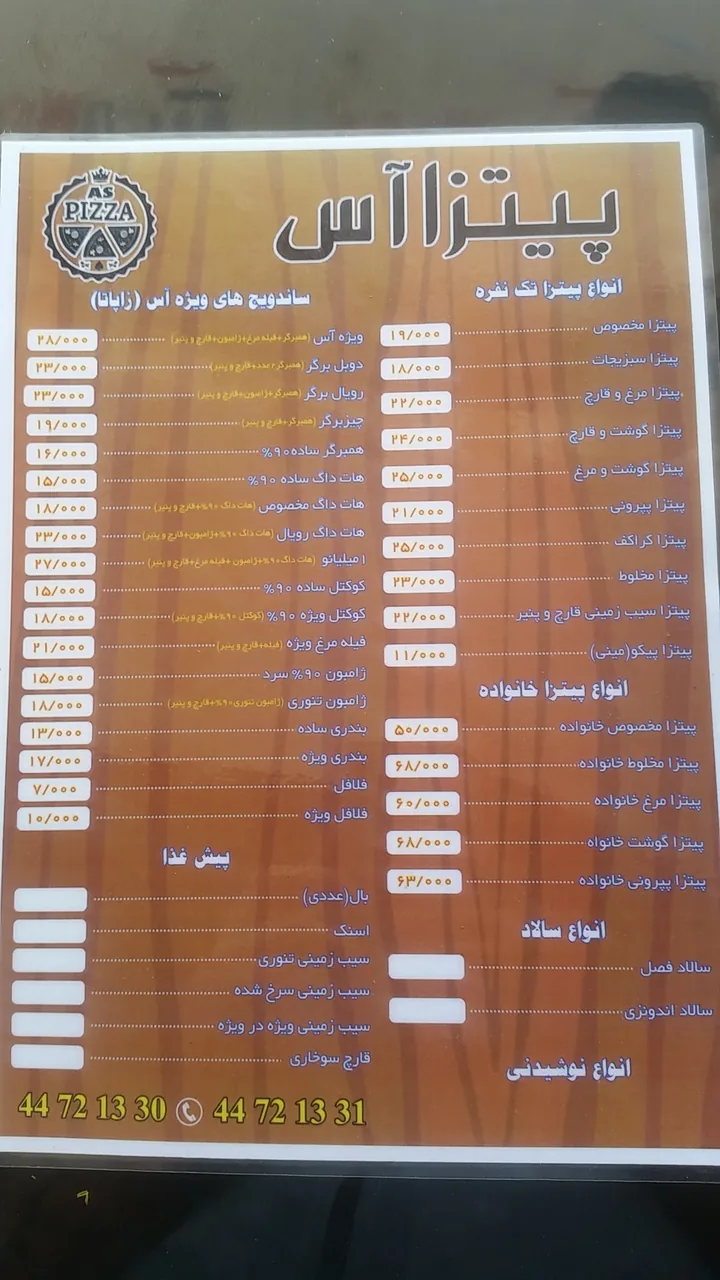 AS
PIZZA
پیتزا آس
انواع پیتزا تک نفره
پیتزا مخصوص ۱۹/۰۰۰
پیتزا سبزیجات ۱۸/۰۰۰
پیتزا مرغ و قارچ ۲۲/۰۰۰
پیتزا گوشت و قارچ ۲۴/۰۰۰
پیتزا گوشت و مرغ ۲۵/۰۰۰
پیتزا پپرونی ۲۱/۰۰۰
پیتزا کراکف ۲۵/۰۰۰
پیتزا مخلوط ۲۳/۰۰۰
پیتزا سیب زمینی قارچ و پنیر ۲۲/۰۰۰
پیتزا پیکو(مینی) ۱۱/۰۰۰
انواع پیتزا خانواده
پیتزا مخصوص خانواده ۵۰/۰۰۰
پیتزا مخلوط خانواده ۶۸/۰۰۰
پیتزا مرغ خانواده ۶۰/۰۰۰
پیتزا گوشت خانواه ۶۸/۰۰۰
پیتزا پپرونی خانواده ۶۳/۰۰۰
انواع سالاد
سالاد فصل
سالاد اندونزی
انواع نوشیدنی
ساندویچ های ویژه آس (زاپاتا)
ویژه آس (همبرگر+فیله مرغ+ژامبون+قارچ و پنیر) ۲۸/۰۰۰
دوبل برگر (همبرگر۲عدد+قارچ و پنیر) ۲۳/۰۰۰
رویال برگر (همبرگر+ژامبون+قارچ و پنیر) ۲۳/۰۰۰
چیزبرگر (همبرگر+قارچ و پنیر) ۱۹/۰۰۰
همبرگر ساده۹۰% ۱۶/۰۰۰
هات داگ ساده ۹۰% ۱۵/۰۰۰
هات داگ مخصوص (هات داگ ۹۰%+قارچ و پنیر) ۱۸/۰۰۰
هات داگ رویال (هات داگ ۹۰%+ژامبون+قارچ و پنیر) ۲۳/۰۰۰
امیلیانو (هات داگ۹۰%+ژامبون +فیله مرغ+قارچ و پنیر) ۲۷/۰۰۰
کوکتل ساده ۹۰% ۱۵/۰۰۰
کوکتل ویژه ۹۰% (کوکتل ۹۰%+قارچ و پنیر) ۱۸/۰۰۰
فیله مرغ ویژه (فیله+قارچ و پنیر) ۲۱/۰۰۰
ژامبون ۹۰% سرد ۱۵/۰۰۰
ژامبون تنوری (ژامبون تنوری۹۰%+قارچ و پنیر) ۱۸/۰۰۰
بندری ساده ۱۳/۰۰۰
بندری ویژه ۱۷/۰۰۰
فلافل ۷/۰۰۰
فلافل ویژه ۱۰/۰۰۰
پیش غذا
بال(عددی)
اسنک
سیب زمینی تنوری
سیب زمینی سرخ شده
سیب زمینی ویژه در ویژه
قارچ سوخاری
44 72 13 30 44 72 13 31